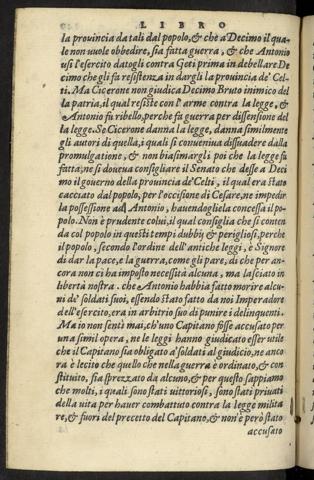 LIBRO
la prouincia da tali dal popolo, & che a Decimo il qua-
le non uuole obbedire, sia fatta guerra, & che Antonio
usi l'esercito datogli contra Geti prima in debellare De
cimo che gli fa resistenza in dargli la prouincia de' Cel-
ti. Ma Cicerone non giudica Decimo Bruto inimico del
la patria, il qual resiste con l'arme contra la legge, &
Antonio fu ribello, perche fa guerra per dissensione del
la legge. Se Cicerone danna la legge, danna similmente
gli autori di quella, i quali si conueniua dissuadere dalla
promulgatione, & non biasimargli poi che la legge fu
fatta; ne si doueua consigliare il Senato che desse a Deci
mo il gouerno della prouincia de' Celti, il qual era stato
cacciato dal popolo, per l'occisione di Cesare, ne impedir
la possessione ad Antonio, hauendogliela concessa il po-
polo. Non è prudente colui, il qual consiglia che si conten
da col popolo in questi tempi dubbij & perigliosi, perche
il popolo, secondo l'ordine dell'antiche leggi, è Signore
di dar la pace, e la guerra, come gli pare, di che per an-
cora non ci ha imposto necessità alcuna, ma lasciato in
libertà nostra. che Antonio habbia fatto morire alcu-
ni de' soldati suoi, essendo stato fatto da noi Imperadore
dell'esercito, era in arbitrio suo di punire i delinquenti.
Ma io non sentì mai, ch'uno Capitano fosse accusato per
una simil opera, ne le leggi hanno giudicato esser utile
che il Capitano sia obligato a' soldati al giudicio, ne anco
ra è lecito che quello che nella guerra è ordinato, & con
stituito, sia sprezzato da alcuno, & per questo sappiamo
che molti, i quali sono stati uittoriosi, sono stati priuati
della uita per hauer combattuto contra la legge milita
re, & fuori del precetto del Capitano, & non è però stato
accusato